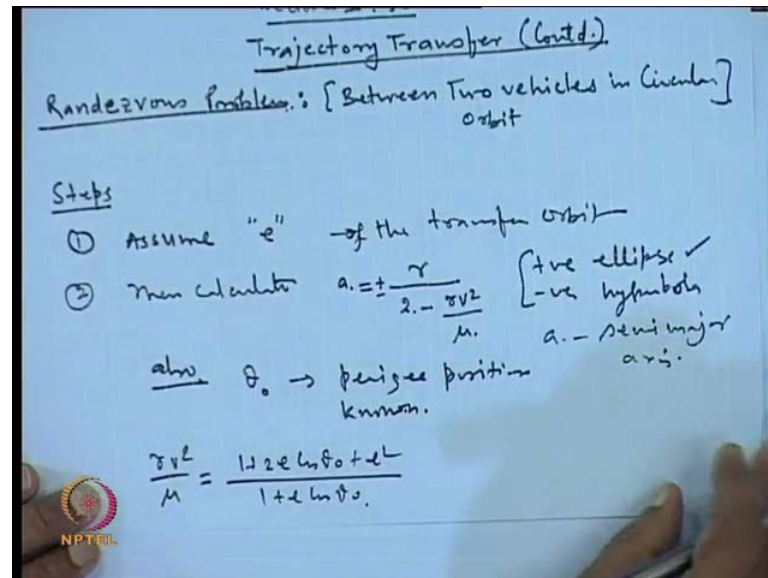 Trajectory Transfer (Contd.)
Randezvous Problem: [Between Two vehicles in Circular]
orbit
Steps
① Assume "e" of the transfer orbit
② Then calculate a = ± r / (2 - rv²/μ) [+ve ellipse ✓
-ve hyperbola
a - semi major
axis.
also θ₀ → perigee position
known.
rv²/μ = (1+2e cos θ₀ + e²) / (1+e cos θ₀)
NPTEL